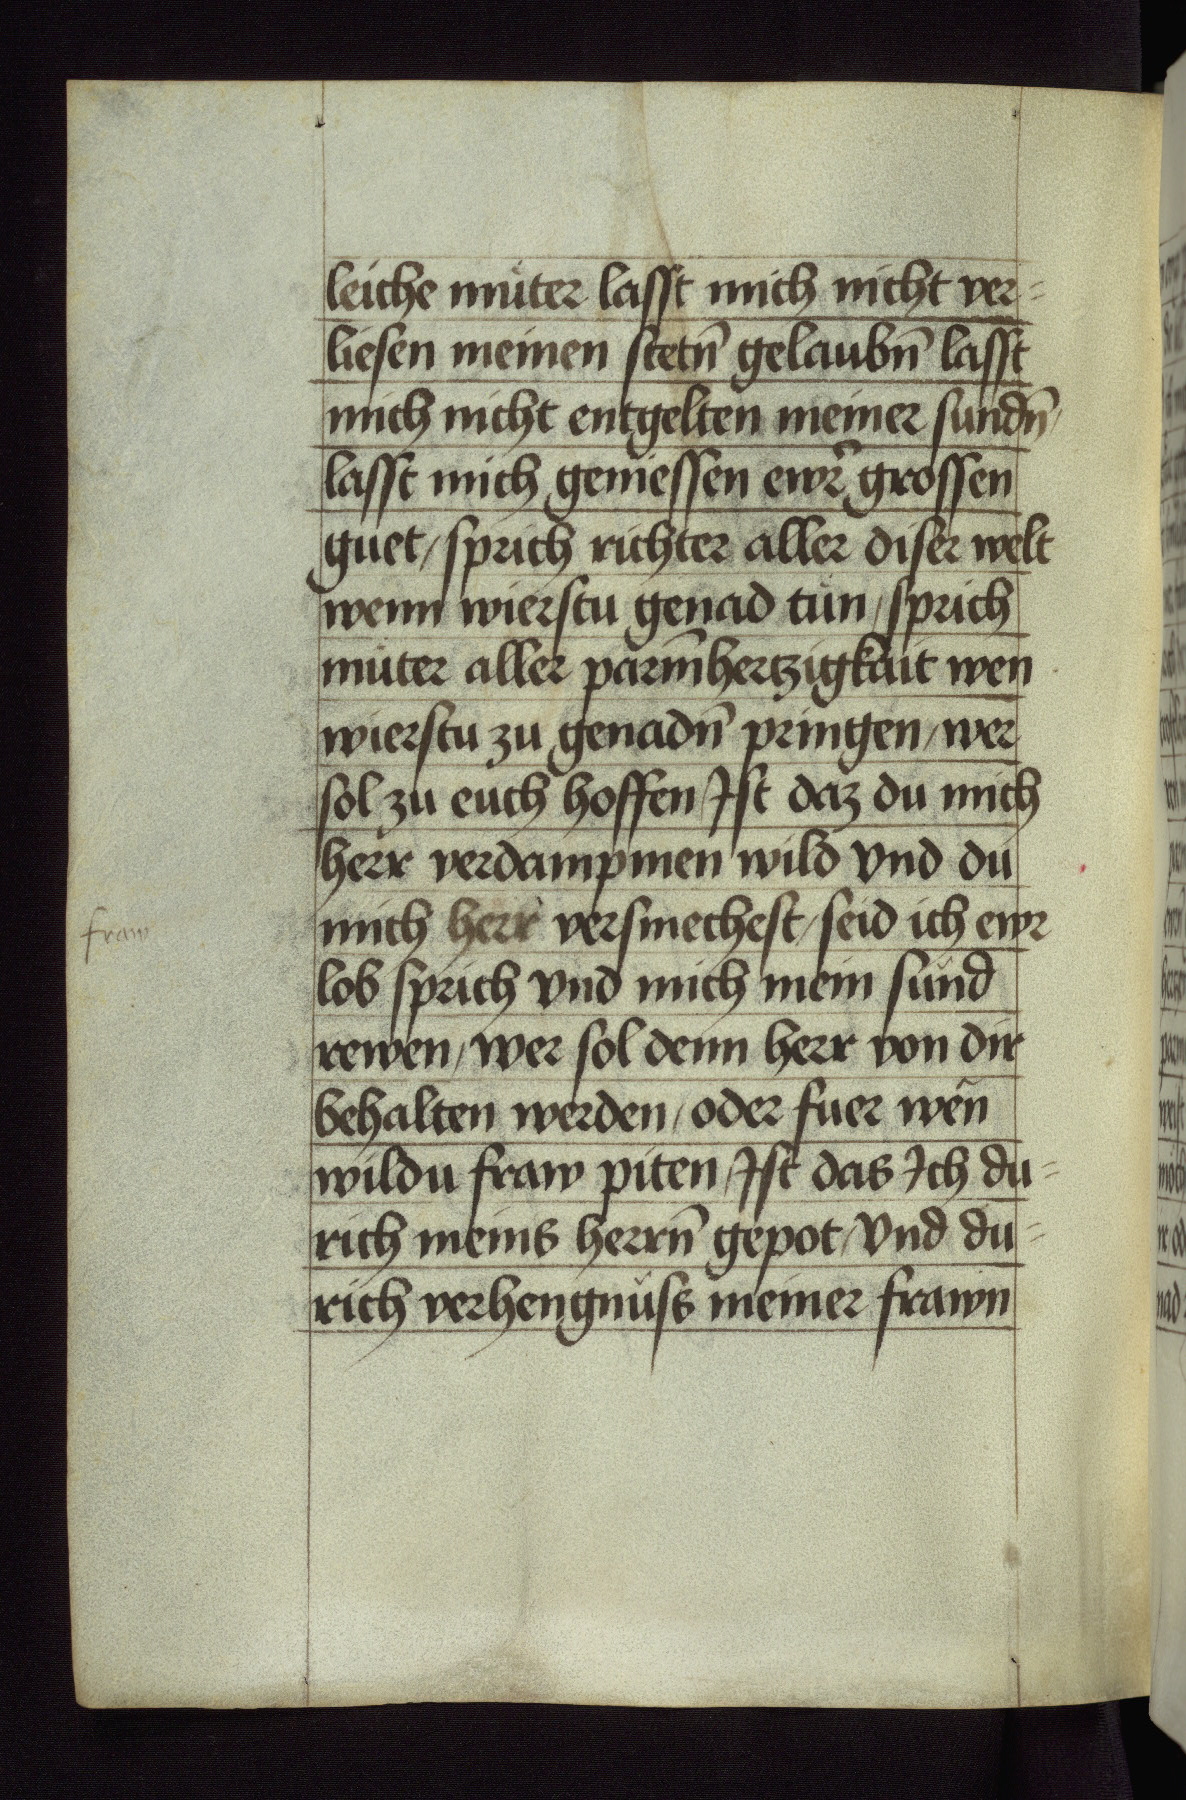 leiche můter lasst mich nicht ver=
liesen meinen stetn̄ gelaubn̄ lasst
mich nicht entgelten meiner sundn̄/
lasst mich geniessen ewr̄ grossen
guet/ sprich richter aller diser welt
wenn wierstu genad tůn/ sprich
můter aller parm̄hertzigkait wen
wierstu zu genadn̄ pringen/ wer
sol zu euch hoffen/ Ist daz du mich
herr verdampmen wild vnd du
fraw
mich herr versmechest/ seid ich ewr
lob sprich vnd mich mein sůnd
rewen/ wer sol denn herr von dir
behalten werden/ oder fuer wen̄
wildu fraw piten/ Ist das Ich du=
rich meins herrn̄ gepot/ Vnd du=
rich verhengnůss meiner frawn